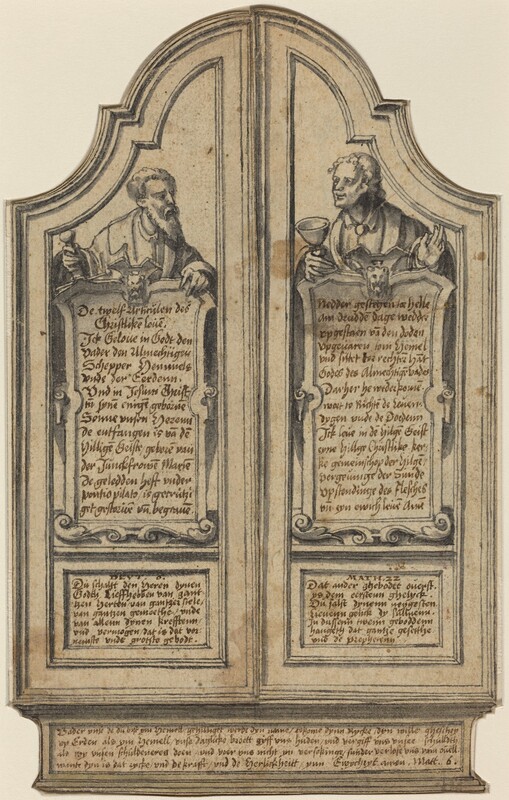 De twolf Articulen des
Christliken loue.
Ick Geloue in Godt den
Vader den Almechtigen
Schepper Hemmels
vnde der Eerdenn.
Vnd in Jesum Christ
sone enige gebaren
Sonne vnsen Heren
de entfangen is va de
Hillige Geiste geborē van
der Junckfrowe Marie
De geledden heft vnder
pontio pilato, is gecrutzi
get gestoruē vn begrauē.
Nedder gestegen to helle
Am drudde dage wedder
vpgestaen vā den doden
Vpgeuaren tom Hemel
vnd sittet to rechter hāt
Godes des Almechtige vaders
Dar her he wedder
to Richte de leuen
dygen vnde de Dodenn
Ick loue in de hilge Geist
eyne hillige Christlike ker
ke gemeinschop der Hilge
Vergeuinge der Sunde
Vpstandinge des Flesches
vn eyn ewich leuē Amē
DEVT. 6.
Du schalt den Heren dynen
Godth Lieffhebben van gant
zen herten van gantzer siele,
van gantzen gemoethe, vnde
van allenn dynen krefftenn
vnd vermogen, dat is dat vor
nemste vnde groitste gebodt.
MATH. 22
Dat ander ghebodt ouerst.
ys dem eersten ghelyck.
Du salst dynenn negesten
lieuenn gelick dy sulluenn.
In dussenn twenn gebodenn
hangeth dat gantze gesetthe
vnd de Prophetenn
Vader vnse de du bist ym Hemell, gehilliget werde dyn name, tokome dyn Rycke, dyn wille geschehe
vp Erden als ym Hemell, vnse dagelicke broett gyff vns huden, vnd vergiff vns vnse schuldth
als wy vnsen schuldeneres doen, vnd voer vns nicht yn versokinge, sunder verlose vns vam ouell
wente dyn is dat rycke, vnd de krafft, vnd de Herlickheitt ynn Ewicheit amen. Matt. 6.